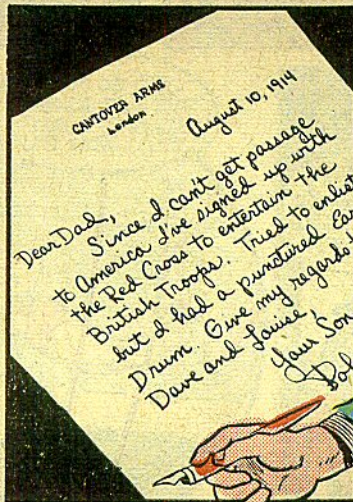 CANTOVER ARMS
London
August 10, 1914
Dear Dad,
Since I can't get passage
to America I've signed up with
the Red Cross to entertain the
British Troops. Tried to enlist
but I had a punctured Ear
Drum. Give my regards to
Dave and Louise,
Your Son